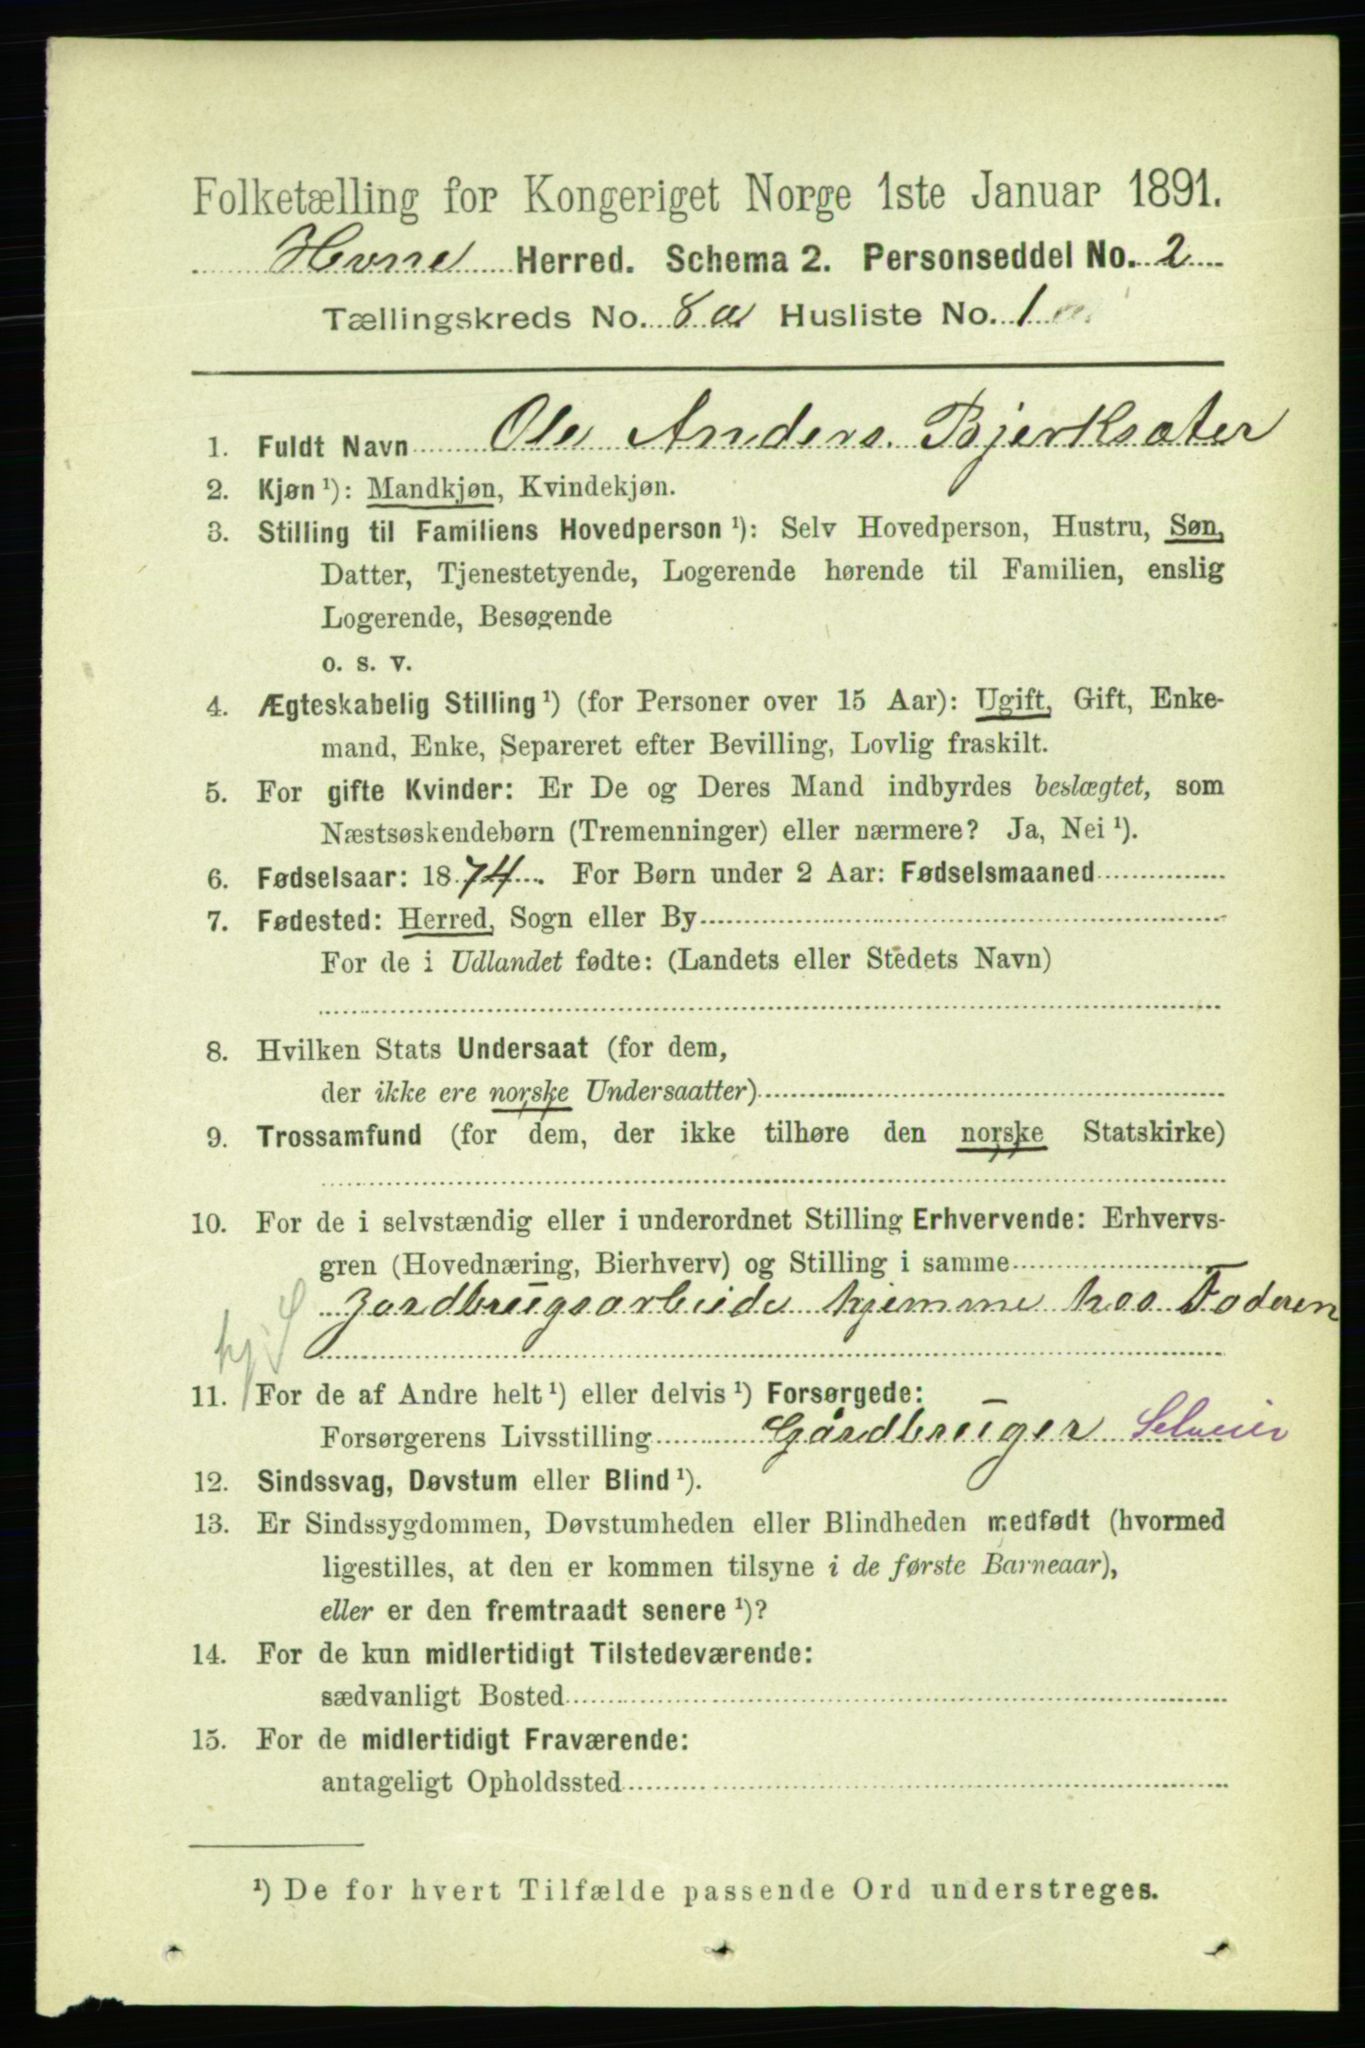 Folketælling for Kongeriget Norge 1ste Januar 1891.
Hevne Herred. Schema 2. Personseddel No. 2
Tællingskreds No. 8 a Husliste No. 1 a
1. Fuldt Navn Ole Anders. Bjerksæter
2. Kjøn ¹): Mandkjøn, Kvindekjøn.
3. Stilling til Familiens Hovedperson ¹): Selv Hovedperson, Hustru, Søn,
Datter, Tjenestetyende, Logerende hørende til Familien, enslig
Logerende, Besøgende
o. s. v.
4. Ægteskabelig Stilling ¹) (for Personer over 15 Aar): Ugift, Gift, Enke-
mand, Enke, Separeret efter Bevilling, Lovlig fraskilt.
5. For gifte Kvinder: Er De og Deres Mand indbyrdes beslægtet, som
Næstsøskendebørn (Tremenninger) eller nærmere? Ja, Nei ¹).
6. Fødselsaar: 1874. For Børn under 2 Aar: Fødselsmaaned
7. Fødested: Herred, Sogn eller By
For de i Udlandet fødte: (Landets eller Stedets Navn)
8. Hvilken Stats Undersaat (for dem,
der ikke ere norske Undersaatter)
9. Trossamfund (for dem, der ikke tilhøre den norske Statskirke)
10. For de i selvstændig eller i underordnet Stilling Erhvervende: Erhvervs-
gren (Hovednæring, Bierhverv) og Stilling i samme
Jordbrugsarbeide hjemme hos Faderen
11. For de af Andre helt ¹) eller delvis ¹) Forsørgede:
Forsørgerens Livsstilling Gårdbruger Selveier
12. Sindssvag, Døvstum eller Blind ¹).
13. Er Sindssygdommen, Døvstumheden eller Blindheden medfødt (hvormed
ligestilles, at den er kommen tilsyne i de første Barneaar),
eller er den fremtraadt senere ¹)?
14. For de kun midlertidigt Tilstedeværende:
sædvanligt Bosted
15. For de midlertidigt Fraværende:
antageligt Opholdssted
¹) De for hvert Tilfælde passende Ord understreges.